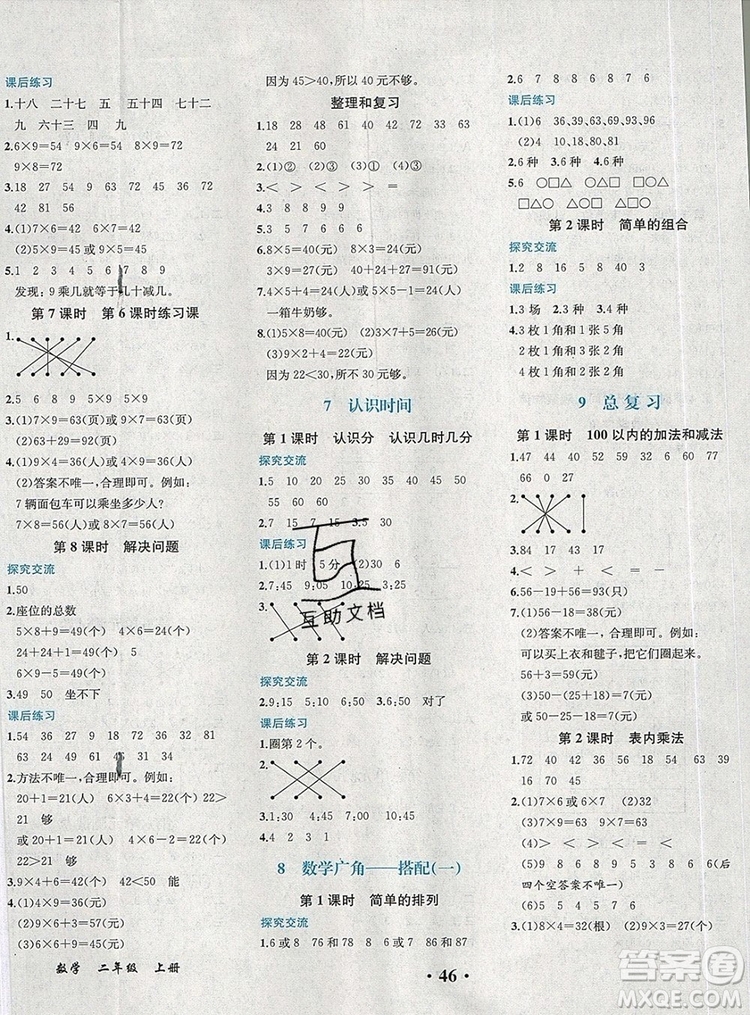 课后练习
1.十八 二十七 五 五十四 七十二
九 六十三 四 九
2.6×9=54 9×6=54 8×9=72
9×8=72
3.18 27 54 9 63 72 45 36 72
42 81 56
4.(1)6×7=42 7×6=42
(2)5×9=45 或 9×5=45
5.1 2 3 4 5 6 7 8 9
发现:9乘几就等于几十减几。
第7课时 第6课时练习课
1.
2.5 6 8 9 5 9 5×9
3.(1)7×9=63(页)或 9×7=63(页)
4.(1)9×6=54(人)或 6×9=54(人)
(2)答案不唯一,合理即可。例如:
7辆面包车可以乘坐多少人?
7×8=56(人)或 8×7=56(人)
第8课时 解决问题
探究交流
1.50
2.座位的总数
5×8+9=49(个) 4×6=24(个)
24+24=48(个)或
6×8=48(个)
3.49 50 坐不下
课后练习
1.54 36 27 9 18 72 36 32 81
63 24 49 61 48 31 34 54
2.方法不唯一,合理即可。例如:
20+1=21(个) 6×3+4=22(个) 22>
21 够
或 20+1=21(个) 4×5+2=22(个)
22>21 够
3.7×6=42(个) 42<50 能
4.(1)9×4=36(元)或 4×9=36(元)
(2)9×6=54(元)或 6×9=54(元)
(3)9×4+9=45(元)
数学 二年级 上册
因为45>40,所以40元不够。
整理和复习
1.18 28 48 42 72 33 63
24 64 27 32 21 54
2.(1)① (2)③ (3)① (4)②
3.< > > = < >
4.27 9 7 8 8
5.64 56 8 40 3
6.8×5=40(元) 8×3=24(元)
24+40=64(元)
7.4×5+4=24(人)或 5×5-1=24(人)
一箱牛奶够。
8.(1)5×8=40(元) (2)4×6=24(元)
(3)9×2+4=22(元)
因为22<30,所以30元够。
7 认识时间
第1课时 认识分 认识几时几分
探究交流
1.5 10 20 25 30 35 40 50
55 60 60
2.7 15 7 15 3:5 30
课后练习
1.(1)1时 5分 (2)30 6
2.7:45 9:05 10:25 3:45
3.
互助文档
第2课时 解决问题
探究交流
2.9:15 5:10 3.6:50 对了
课后练习
1.圈第2个。
2.
3.1:00 4:15 7:30 10:45
4.4 2 3 1
8 数学广角——搭配(一)
第1课时 简单的排列
探究交流
1.6或8 76和78 67或86和87
46
2.6 7 8 8 7 8 6 6 7
课后练习
1.(1)6 36,39,63,69,93,96
(2)4 10,80,18,81
2.6种 3.6种 4.6种
5.6 ○□△ ○△□ □○△
□△○ △□○ △○□
第2课时 简单的组合
探究交流
1.2 8 16 5 8 40 3
课后练习
1.3场 2.3种
3.4枚1角和1张5角
4.3枚1角和2张5角
9 总复习
第1课时 100以内的加法和减法
1.47 44 29 32 59 60 52 51
66 0 27
2.
3.84 17 43 44
4.< + + < - =
6.56-19+56=93(只)
7.(1)56-18=38(元)
(2)答案不唯一,合理即可。例如:
可以买上衣和毽子,共需59元。
56+3=59(元)
(3)50-(18+25)=7(元)
或 50-25-18=7(元)
第2课时 表内乘法
1.54 27 24 18 48 63 28 39
16 70 45
2.(1)7×6 或 6×7 (2)32
(3)7×8 或 8×7
(4)> < > > < =
(5)9 8 72 8 9 72 8 6(后
四个空答案不唯一)
3.(1)8×1 (2)8 (3)9×1 或 9+0
答案圈
MXQE.COM